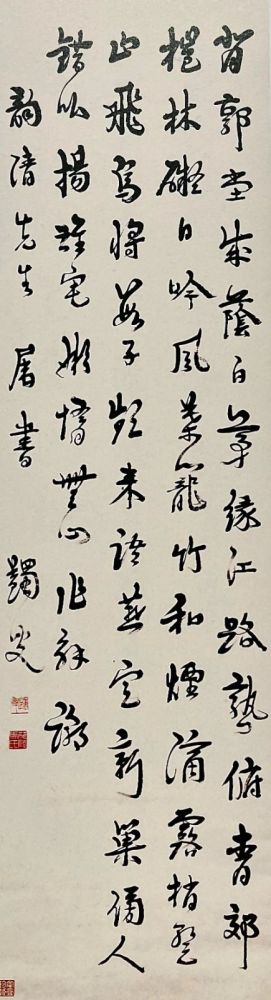 背郭堂成蔭白茅緣江路熟俯青郊
榿林礙日吟風葉籠竹和煙滴露梢暫
止飛烏將數子頻來語燕定新巢傍人
錯比揚雄宅嬾惰無心作解嘲
韵清先生 屬書 蠲叟